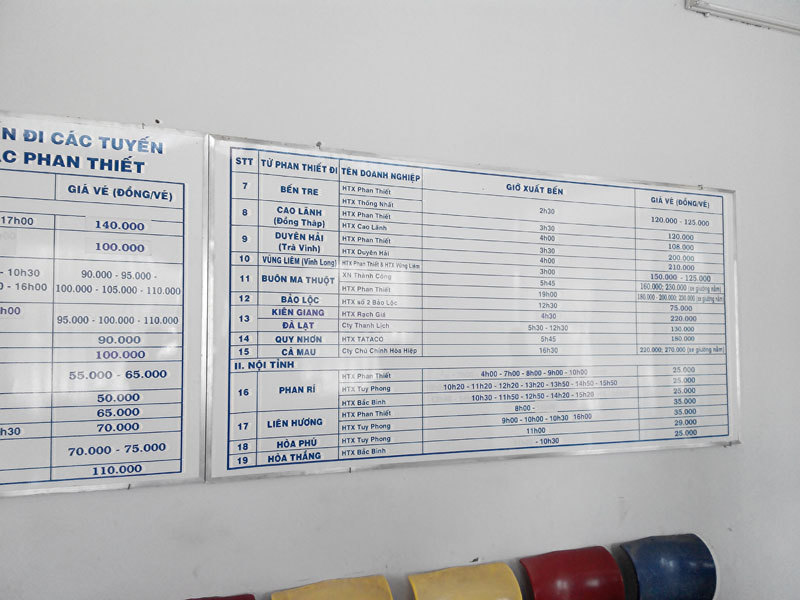 N ĐI CÁC TUYẾN
C PHAN THIẾT
GIÁ VÉ (ĐỒNG/VÉ)
17h00 140.000
100.000
- 10h30 90.000 - 95.000 -
- 16h00 100.000 - 105.000 - 110.000
h00 95.000 - 100.000 - 110.000
90.000
100.000
55.000 - 65.000
50.000
65.000
h30 70.000
70.000 - 75.000
110.000
STT TỪ PHAN THIẾT ĐI TÊN DOANH NGHIỆP GIỜ XUẤT BẾN GIÁ VÉ (ĐỒNG/VÉ)
7 BẾN TRE HTX Phan Thiết
HTX Thống Nhất 2h30 120.000 - 125.000
8 CAO LÃNH HTX Phan Thiết
(Đồng Tháp) HTX Cao Lãnh 3h30 120.000
9 DUYÊN HẢI HTX Phan Thiết 4h00 108.000
(Trà Vinh) HTX Duyên Hải 3h30 200.000
10 VŨNG LIÊM (Vĩnh Long) HTX Phan Thiết & HTX Vũng Liêm 4h00 210.000
11 BUÔN MA THUỘT XN Thành Công 3h00 150.000 - 125.000
HTX Phan Thiết 5h45 160.000; 230.000 (xe giường nằm)
19h00 180.000 - 200.000; 230.000 (xe giường nằm)
12 BẢO LỘC HTX số 2 Bảo Lộc 12h30 75.000
13 KIÊN GIANG HTX Rạch Giá 4h30 220.000
ĐÀ LẠT Cty Thanh Lịch 5h30 - 12h30 130.000
14 QUY NHƠN HTX TATACO 5h45 180.000
15 CÀ MAU Cty Chú Chính Hòa Hiệp 16h30 220.000; 270.000 (xe giường nằm)
II. NỘI TỈNH
16 PHAN RÍ HTX Phan Thiết 4h00 - 7h00 - 8h00 - 9h00 - 10h00 25.000
HTX Tuy Phong 10h20 - 11h20 - 12h20 - 13h20 - 13h50 - 14h50 - 15h50 25.000
HTX Bắc Bình 10h30 - 11h50 - 12h50 - 14h20 - 15h20 25.000
17 LIÊN HƯƠNG HTX Phan Thiết 8h00 - 35.000
HTX Tuy Phong 9h00 - 10h00 - 10h30 16h00 35.000
18 HÒA PHÚ HTX Tuy Phong 11h00 29.000
19 HÒA THẮNG HTX Bắc Bình - 10h30 25.000